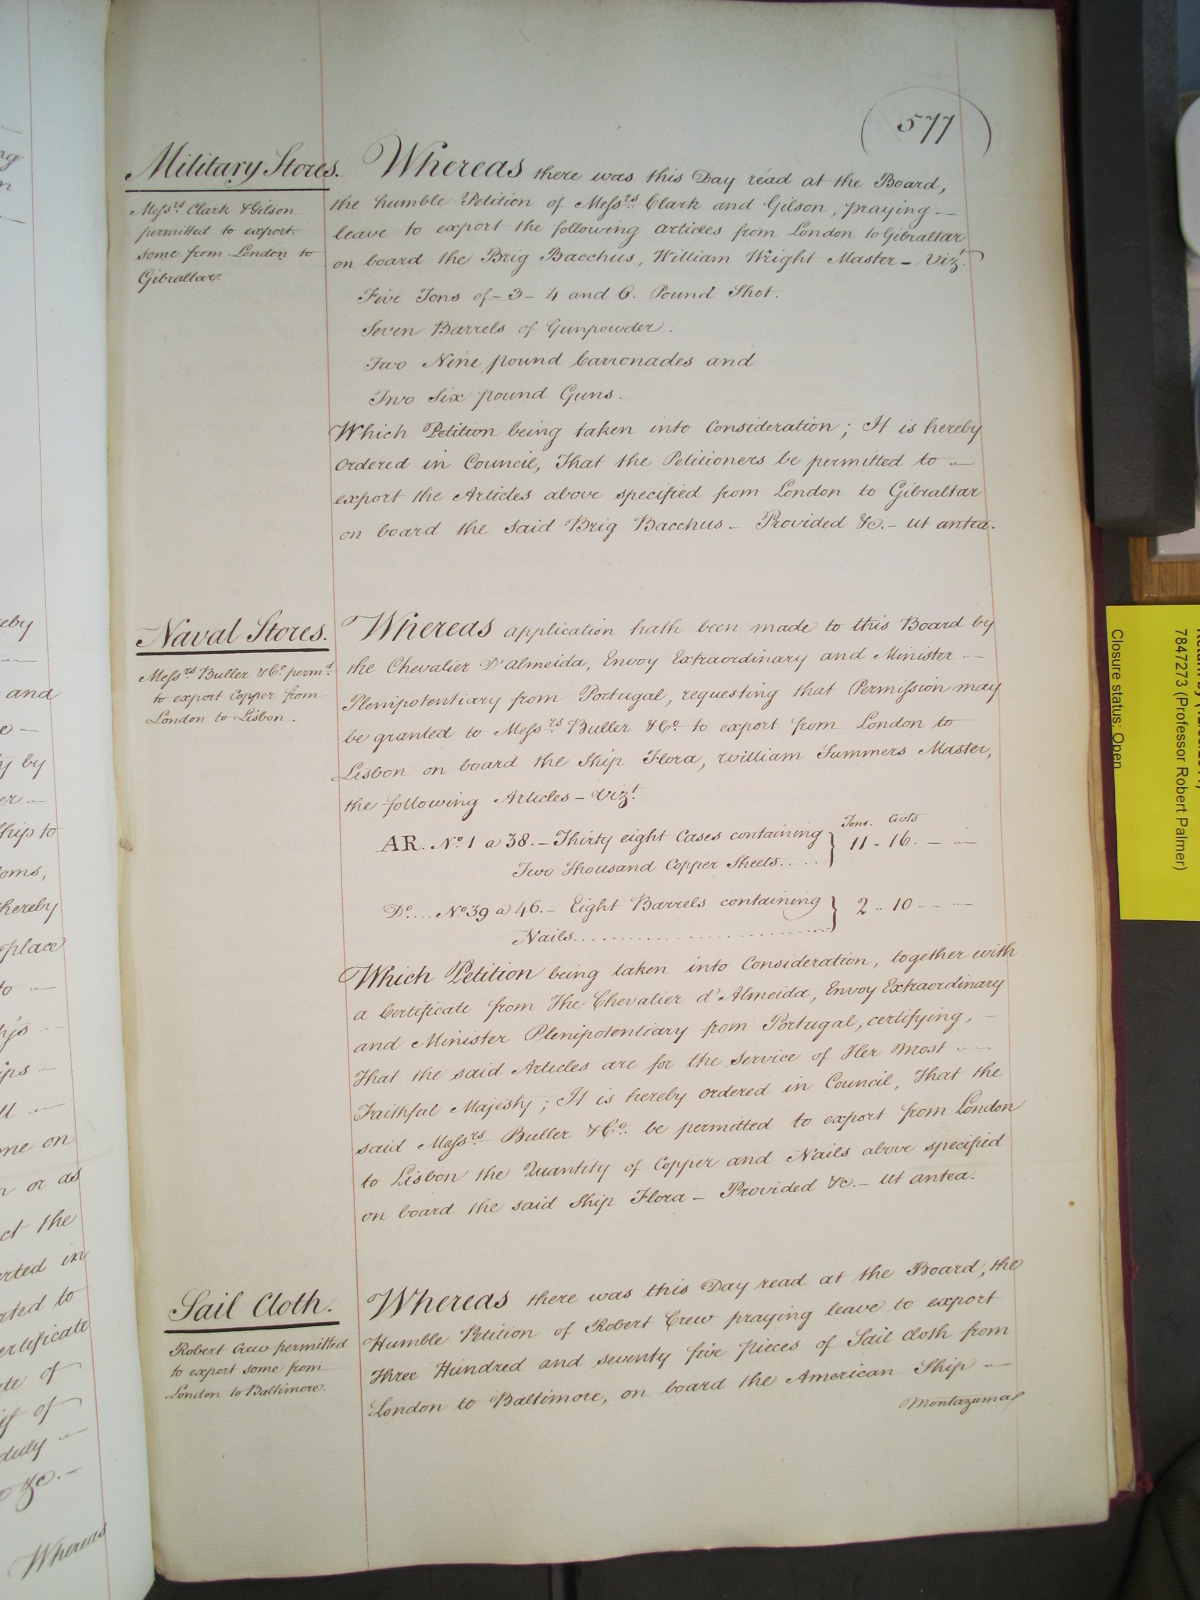 577
Military Stores.
Messrs. Clark & Gilson
permitted to export
some from London to
Gibraltar.
Whereas there was this Day read at the Board,
the humble Petition of Messrs. Clark and Gilson, praying —
leave to export the following articles from London to Gibraltar
on board the Brig Bacchus, William Wright Master – Vizt.
Five Tons of – 3 – 4 and 6. Pound Shot.
Seven Barrels of Gunpowder.
Two Nine pound Carronades and
Two Six pound Guns.
Which Petition being taken into Consideration; It is hereby
Ordered in Council, That the Petitioners be permitted to —
export the Articles above specified from London to Gibraltar
on board the said Brig Bacchus – Provided &c. – ut antea.
Naval Stores.
Messrs. Buller & Co. permd.
to export Copper from
London to Lisbon.
Whereas application hath been made to this Board by
the Chevalier D'almeida, Envoy Extraordinary and Minister —
Plenipotentiary from Portugal, requesting that Permission may
be granted to Messrs. Buller & Co. to export from London to
Lisbon on board the Ship Flora, William Summers Master,
the following Articles – Vizt.
Tons. Cwts
AR. No. 1 a 38. – Thirty eight Cases containing
Two Thousand Copper Sheets..... } 11 .. 16. — —
Do.... No. 39 a 46. – Eight Barrels containing
Nails.............................. } 2 .. 10 — —
Which Petition being taken into Consideration, together with
a Certificate from The Chevalier d'Almeida, Envoy Extraordinary
and Minister Plenipotentiary from Portugal, certifying, –
That the said Articles are for the Service of Her Most —
Faithful Majesty; It is hereby ordered in Council, That the
said Messrs. Buller & Co. be permitted to export from London
to Lisbon the Quantity of Copper and Nails above specified
on board the said Ship Flora – Provided &c. – ut antea.
Sail Cloth.
Robert Crew permitted
to export some from
London to Baltimore.
Whereas there was this Day read at the Board, the
Humble Petition of Robert Crew praying leave to export
Three Hundred and seventy five pieces of Sail cloth from
London to Baltimore, on board the American Ship —
Montazuma
eby
and
by
Ship to
oms,
hereby
place
to —
ips —
me on
or as
ct the
erted in
rted to
ertificate
te of
of
duly —
&c. —
Whereas
7847273 (Professor Robert Palmer)
Closure status: Open